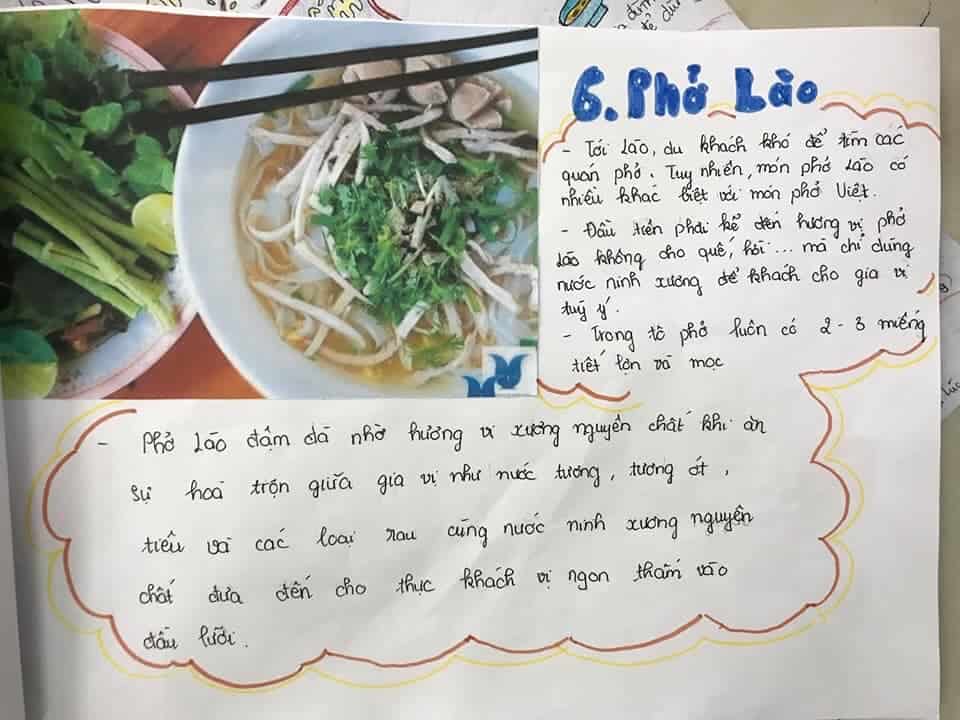 6. Phở Lào
- Tới Lào, du khách khó để tìm các
quán phở. Tuy nhiên, món phở Lào có
nhiều khác biệt với món phở Việt.
- Đầu tiên phải kể đến hương vị phở
Lào không cho quế, hồi... mà chỉ dùng
nước ninh xương để khách cho gia vị
tuỳ ý.
- Trong tô phở luôn có 2 - 3 miếng
tiết lợn và mọc
- Phở Lào đậm đà nhờ hương vị xương nguyên chất khi ăn
sự hoà trộn giữa gia vị như nước tương, tương ớt,
tiêu và các loại rau cùng nước ninh xương nguyên
chất đưa đến cho thực khách vị ngon thấm vào
đầu lưỡi.